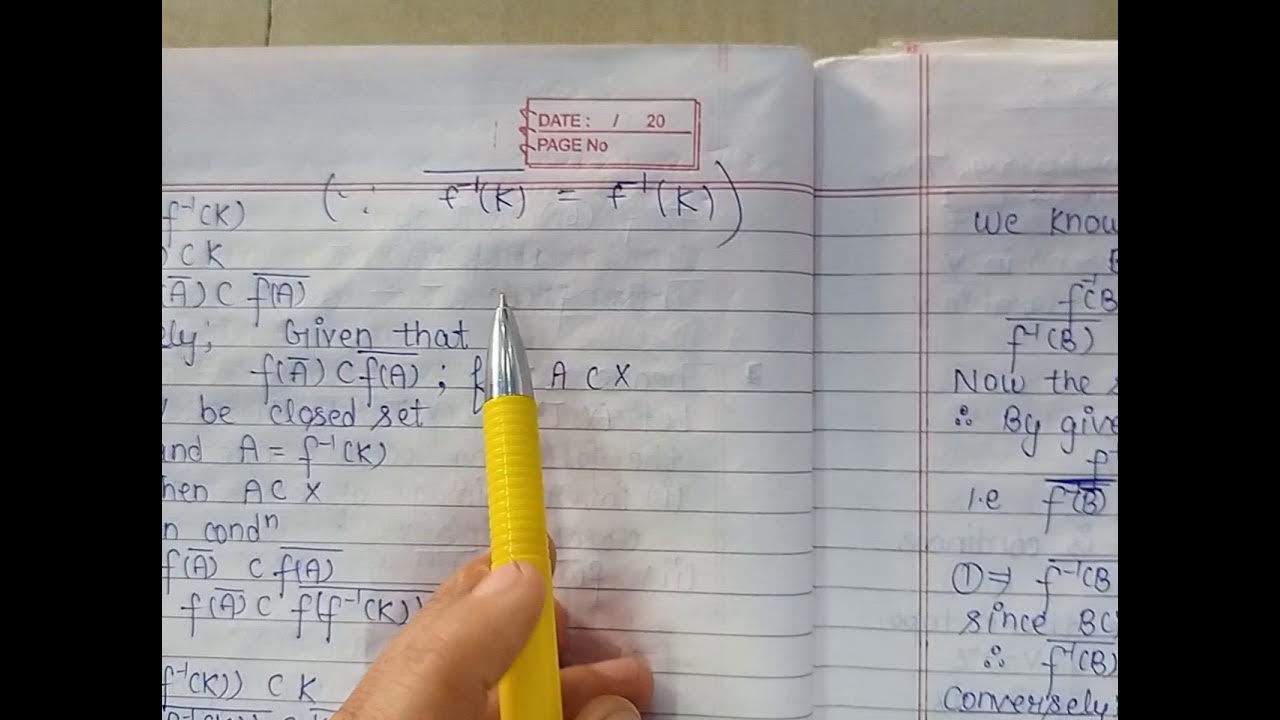 DATE : / 20
PAGE No
(∵ \overline{f⁻¹(K)} = f⁻¹(K))
f⁻¹(K)
) ⊂ K
(\overline{A}) ⊂ \overline{f(A)}
ely; Given that
f(\overline{A}) ⊂ \overline{f(A)} ; A ⊂ X
be closed set
and A = f⁻¹(K)
hen A ⊂ X
n condⁿ
f(\overline{A}) ⊂ \overline{f(A)}
f(\overline{A}) ⊂ \overline{f(f⁻¹(K))}
f⁻¹(K)) ⊂ K
we know
f⁻¹(B
\overline{f⁻¹(B)}
Now the s
∴ By give
i.e \overline{f⁻¹(B)}
① ⇒ \overline{f⁻¹(B}
since B ⊂
∴ \overline{f⁻¹(B)}
Conversely